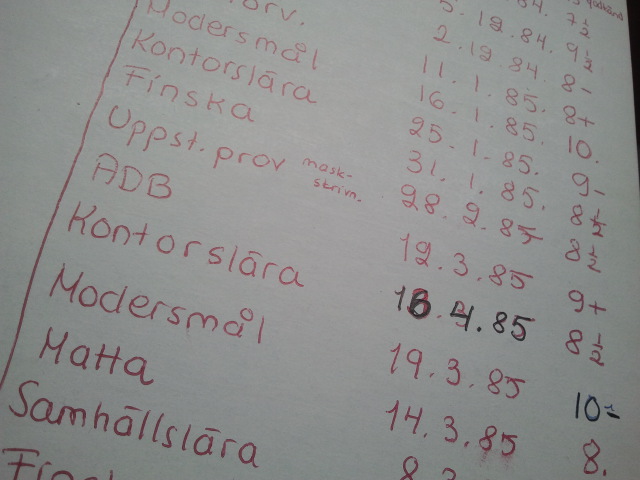 7½
5. 12. 84. 9½
2. 12. 84. 8-
11. 1. 85. 8+
Modersmål 16. 1. 85. 10.
Kontorslära 25. 1. 85. 9-
Finska 31. 1. 85. 8½
Uppst. prov mask-
skrivn. 28. 2. 85 8½
ADB 12. 3. 85 9+
Kontorslära 16. 4. 85 8½
Modersmål 19. 3. 85 10-
Matta 14. 3. 85 8.
Samhällslära